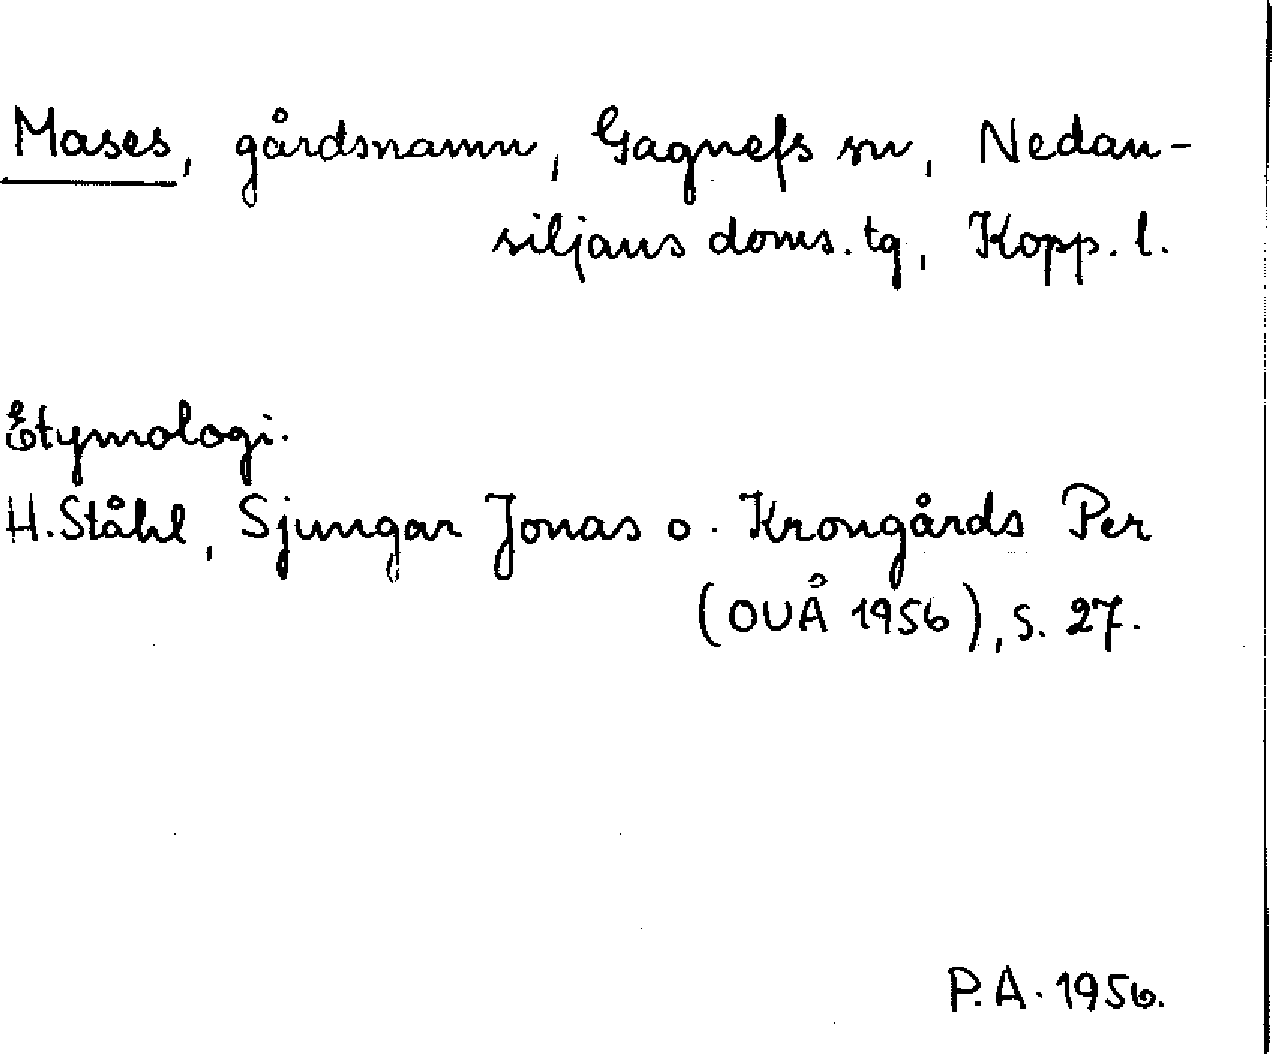 Mases, gårdsnamn, Gagnefs sn, Nedan-
siljans doms. tg, Kopp. l.
Etymologi.
H. Ståhl, Sjungar Jonas o. Krongårds Per
(OUÅ 1956), s. 27.
P. A. 1956.